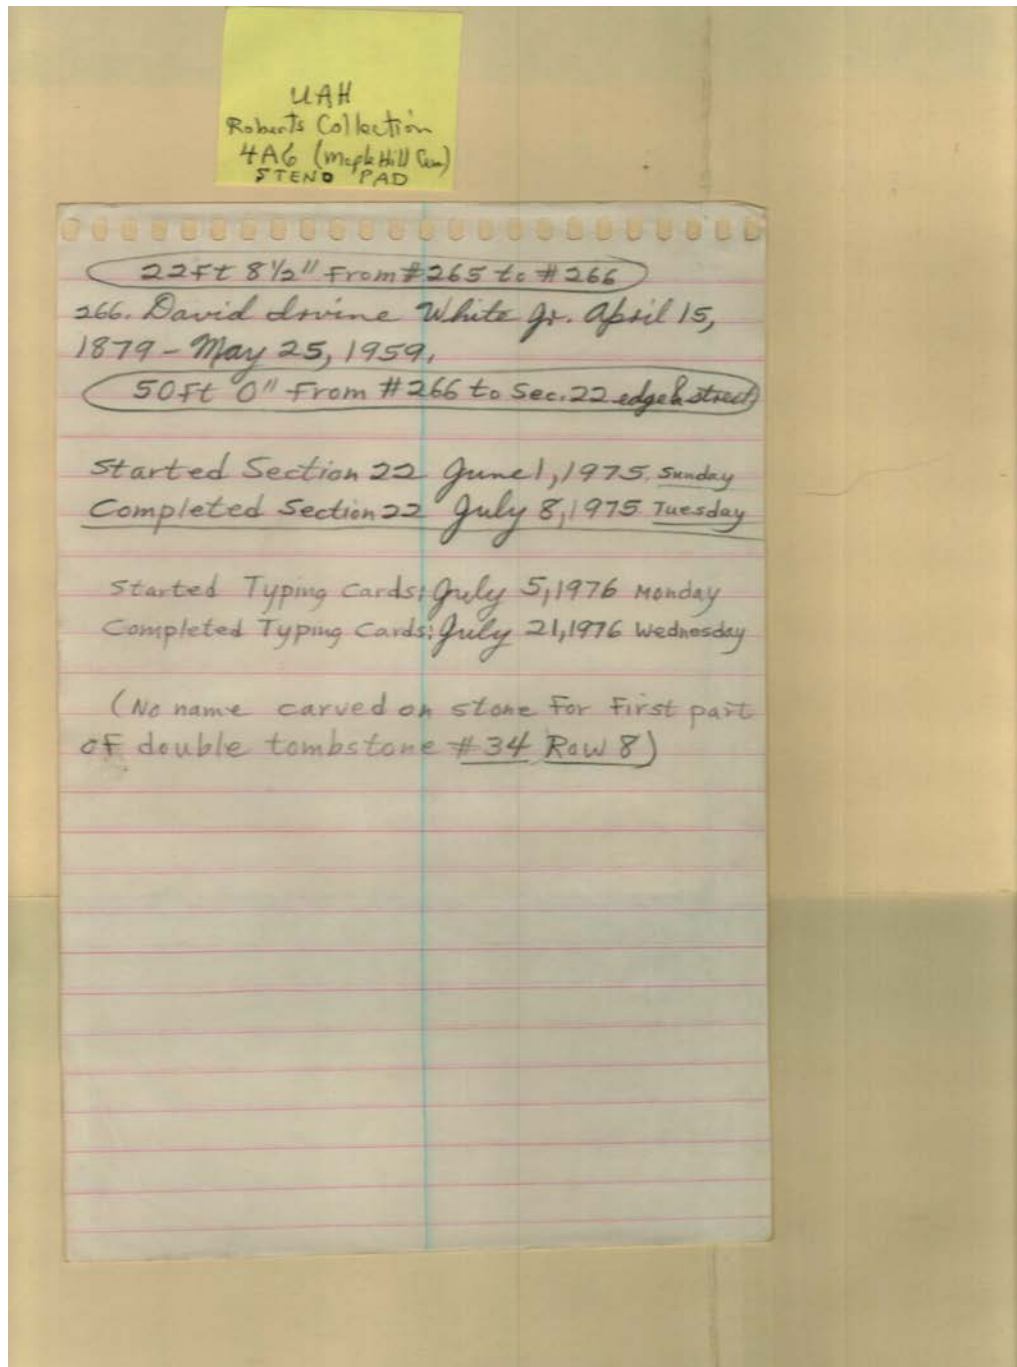 UAH
Roberts Collection
4A6 (Maple Hill Cem)
STENO PAD
22Ft 8 1/2" From #265 to #266
266. David Irvine White Jr. April 15,
1879 - May 25, 1959.
50Ft 0" From #266 to Sec. 22 edge & street
Started Section 22 June 1, 1975. Sunday
Completed Section 22 July 8, 1975 Tuesday
Started Typing Cards: July 5, 1976 Monday
Completed Typing Cards: July 21, 1976 Wednesday
(No name carved on stone For First part
OF double tombstone #34 Row 8)